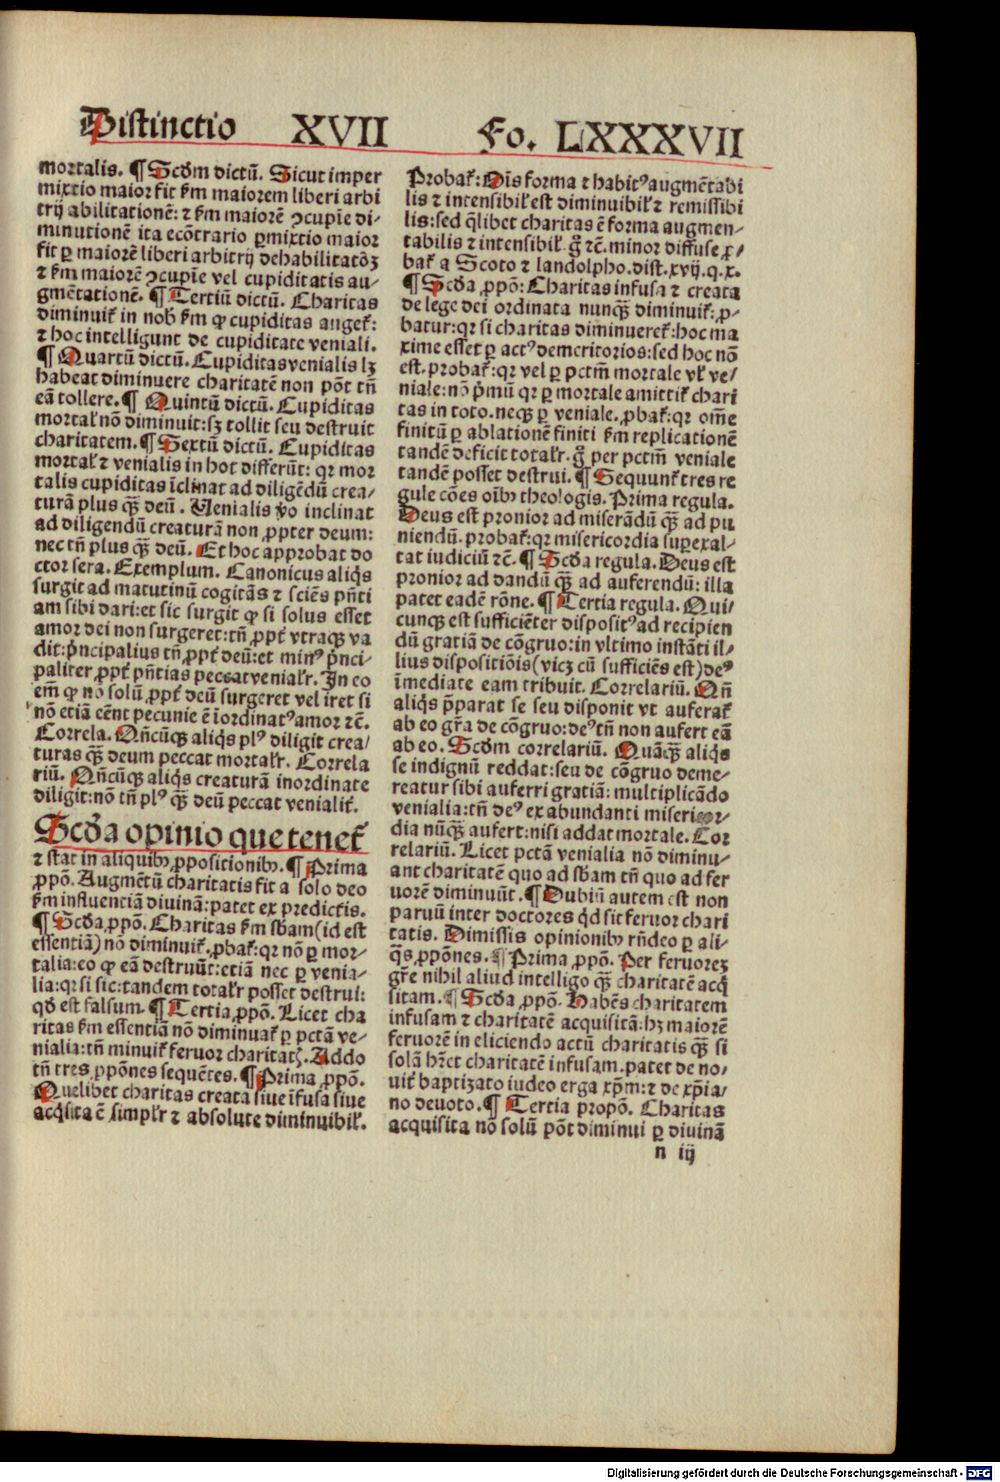 Distinctio XVII Fo. LXXXVII
mortalis. ¶ Scd̄m dictū. Sicut imper
mixtio maior fit ẜm maiorem liberi arbi
trij abilitationē: ⁊ ẜm maiorē ꝯcupīe di-
minutionē ita ecōtrario ꝑmixtio maior
fit ꝑ maiorē liberi arbitrij dehabilitatōꝫ
⁊ ẜm maiorē ꝯcupīe vel cupiditatis au-
gmētationē. ¶ Tertiū dictū. Charitas
diminuit᷑ in nob̄ ẜm ꝙ cupiditas auget᷑:
⁊ hoc intelligunt de cupiditate veniali.
¶ Quartū dictū. Cupiditas venialis lꝫ
habeat diminuere charitatē non pōt tn̄
eā tollere. ¶ Quintū dictū. Cupiditas
mortal᷑ nō diminuit: sꝫ tollit seu destruit
charitatem. ¶ Sextū dictū. Cupiditas
mortal᷑ ⁊ venialis in hoc differūt: qꝛ mor
talis cupiditas īclinat ad diligēdū crea/
turā plus qȝ̄ deū. Venialis ꝟo inclinat
ad diligendū creaturā non ꝓpter deum:
nec tn̄ plus qȝ̄ deū. Et hoc approbat do
ctor sera. Exemplum. Canonicus aliqͥs
surgit ad matutinū cogitās ⁊ sciēs pn̄ti
am sibi dari: et sic surgit ꝙ si solus esset
amor dei non surgeret: tn̄ ꝓpt᷑ vtraqꝫ va
dit: pͥncipalius tn̄ ꝓpt᷑ deū: et minꝰ pͥnci-
paliter ꝓpt᷑ pn̄tias peccat venial᷑r. In eo
em̄ ꝙ nō solū ꝓpt᷑ deū surgeret vel iret si
nō etiā cēnt pecunie ē īordinatꝰ amor ⁊c̄.
Correla. Qn̄cūqꝫ aliqͥs plꝰ diligit crea/
turas qȝ̄ deum peccat mortal᷑r. Correla
riū. Qn̄cūqꝫ aliqͥs creaturā inordinate
diligit: nō tn̄ plꝰ qȝ̄ deū peccat venialit᷑.
Scd̄a opinio que tenet᷑
⁊ stat in aliquibꝰ ꝓpositionibꝰ. ¶ Prima
ꝓpō. Augmētū charitatis fit a solo deo
ẜm influentiā diuinā: patet ex predictis.
¶ Scd̄a ꝓpō. Charitas ẜm sb̄am (id est
essentiā) nō diminuit᷑. ꝓbat᷑: qꝛ nō ꝑ mor-
talia: eo ꝙ eā destruūt: etiā nec ꝑ venia-
lia: qꝛ si sic: tandem total᷑r posset destrui:
qd̄ est falsum. ¶ Tertia ꝓpō. Licet cha
ritas ẜm essentiā nō diminuat᷑ ꝑ pctā ve-
nialia: tn̄ minuit᷑ feruor charitatꝭ. Addo
tn̄ tres ꝓpōnes sequētes. ¶ Prima ꝓpō.
Quelibet charitas creata siue īfusa siue
acqͥsita ē simpl᷑r ⁊ absolute diminuibil᷑.
Probat᷑: Oīs forma ⁊ habitꝰ augmētabi
lis ⁊ intensibil᷑ est diminuibil᷑ ⁊ remissibi
lis: sed qͥlibet charitas ē forma augmen-
tabilis ⁊ intensibil᷑. g̊ ⁊c̄. minor diffuse ꝓ/
bat᷑ a Scoto ⁊ landolpho. dist. xvij. q. x.
¶ Scd̄a ꝓpō: Charitas infusa ⁊ creata
de lege dei ordinata nunqȝ̄ diminuit᷑: ꝓ-
batur: qꝛ si charitas diminueret᷑: hoc ma
xime esset ꝑ actꝰ demeritorios: sed hoc nō
est. probat᷑: qꝛ vel ꝑ pctm̄ mortale vl᷑ ve/
niale: nō pͥmū qꝛ ꝑ mortale amittit᷑ chari
tas in toto. neqꝫ ꝑ veniale. ꝓbat᷑: qꝛ om̄e
finitū ꝑ ablationē finiti ẜm replicationē
tandē deficit total᷑r. g̊ per pctm̄ veniale
tandē posset destrui. ¶ Sequunt᷑ tres re
gule cōes oībꝰ theologis. Prima regula.
Deus est pronior ad miserādū qȝ̄ ad pu
niendū. probat᷑: qꝛ misericordia suꝑexal-
tat iudiciū ⁊c̄. ¶ Scd̄a regula. Deus est
pronior ad dandū qȝ̄ ad auferendū: illa
patet eadē rōne. ¶ Tertia regula. Qui/
cunqꝫ est sufficiēter dispositꝰ ad recipien
dū gratiā de cōgruo: in vltimo instāti il/
lius dispositiōis (vicꝫ cū sufficiēs est) deꝰ
īmediate eam tribuit. Correlariū. Qn̄
aliqͥs p̄parat se seu disponit vt auferat᷑
ab eo gr̄a de cōgruo: deꝰ tn̄ non aufert eā
ab eo. Scd̄m correlariū. Quāqȝ̄ aliqͥs
se indignū reddat: seu de cōgruo deme-
reatur sibi auferri gratiā: multiplicādo
venialia: tn̄ deꝰ ex abundanti misericor-
dia nūqȝ̄ aufert: nisi addat mortale. Cor
relariū. Licet pctā venialia nō diminu-
ant charitatē quo ad sb̄am tn̄ quo ad fer
uorē diminuūt. ¶ Dubiū autem est non
paruū inter doctores qͥd sit feruor chari
tatis. Dimissis opinionibꝰ rn̄deo ꝑ ali-
qͣs ꝓpōnes. ¶ Prima ꝓpō. Per feruorēꝫ
gr̄e nihil aliud intelligo qȝ̄ charitatē acqͥ
sitam. ¶ Scd̄a ꝓpō. Habēs charitatem
infusam ⁊ charitatē acquisitā: hꝫ maiorē
feruorē in eliciendo actū charitatis qȝ̄ si
solā hr̄et charitatē infusam. patet de no-
uit᷑ baptizato iudeo erga xp̄m: ⁊ de xp̄ia-
no deuoto. ¶ Tertia propō. Charitas
acquisita nō solū pōt diminui ꝑ diuinā
n iij
Digitalisierung gefördert durch die Deutsche Forschungsgemeinschaft - DFG